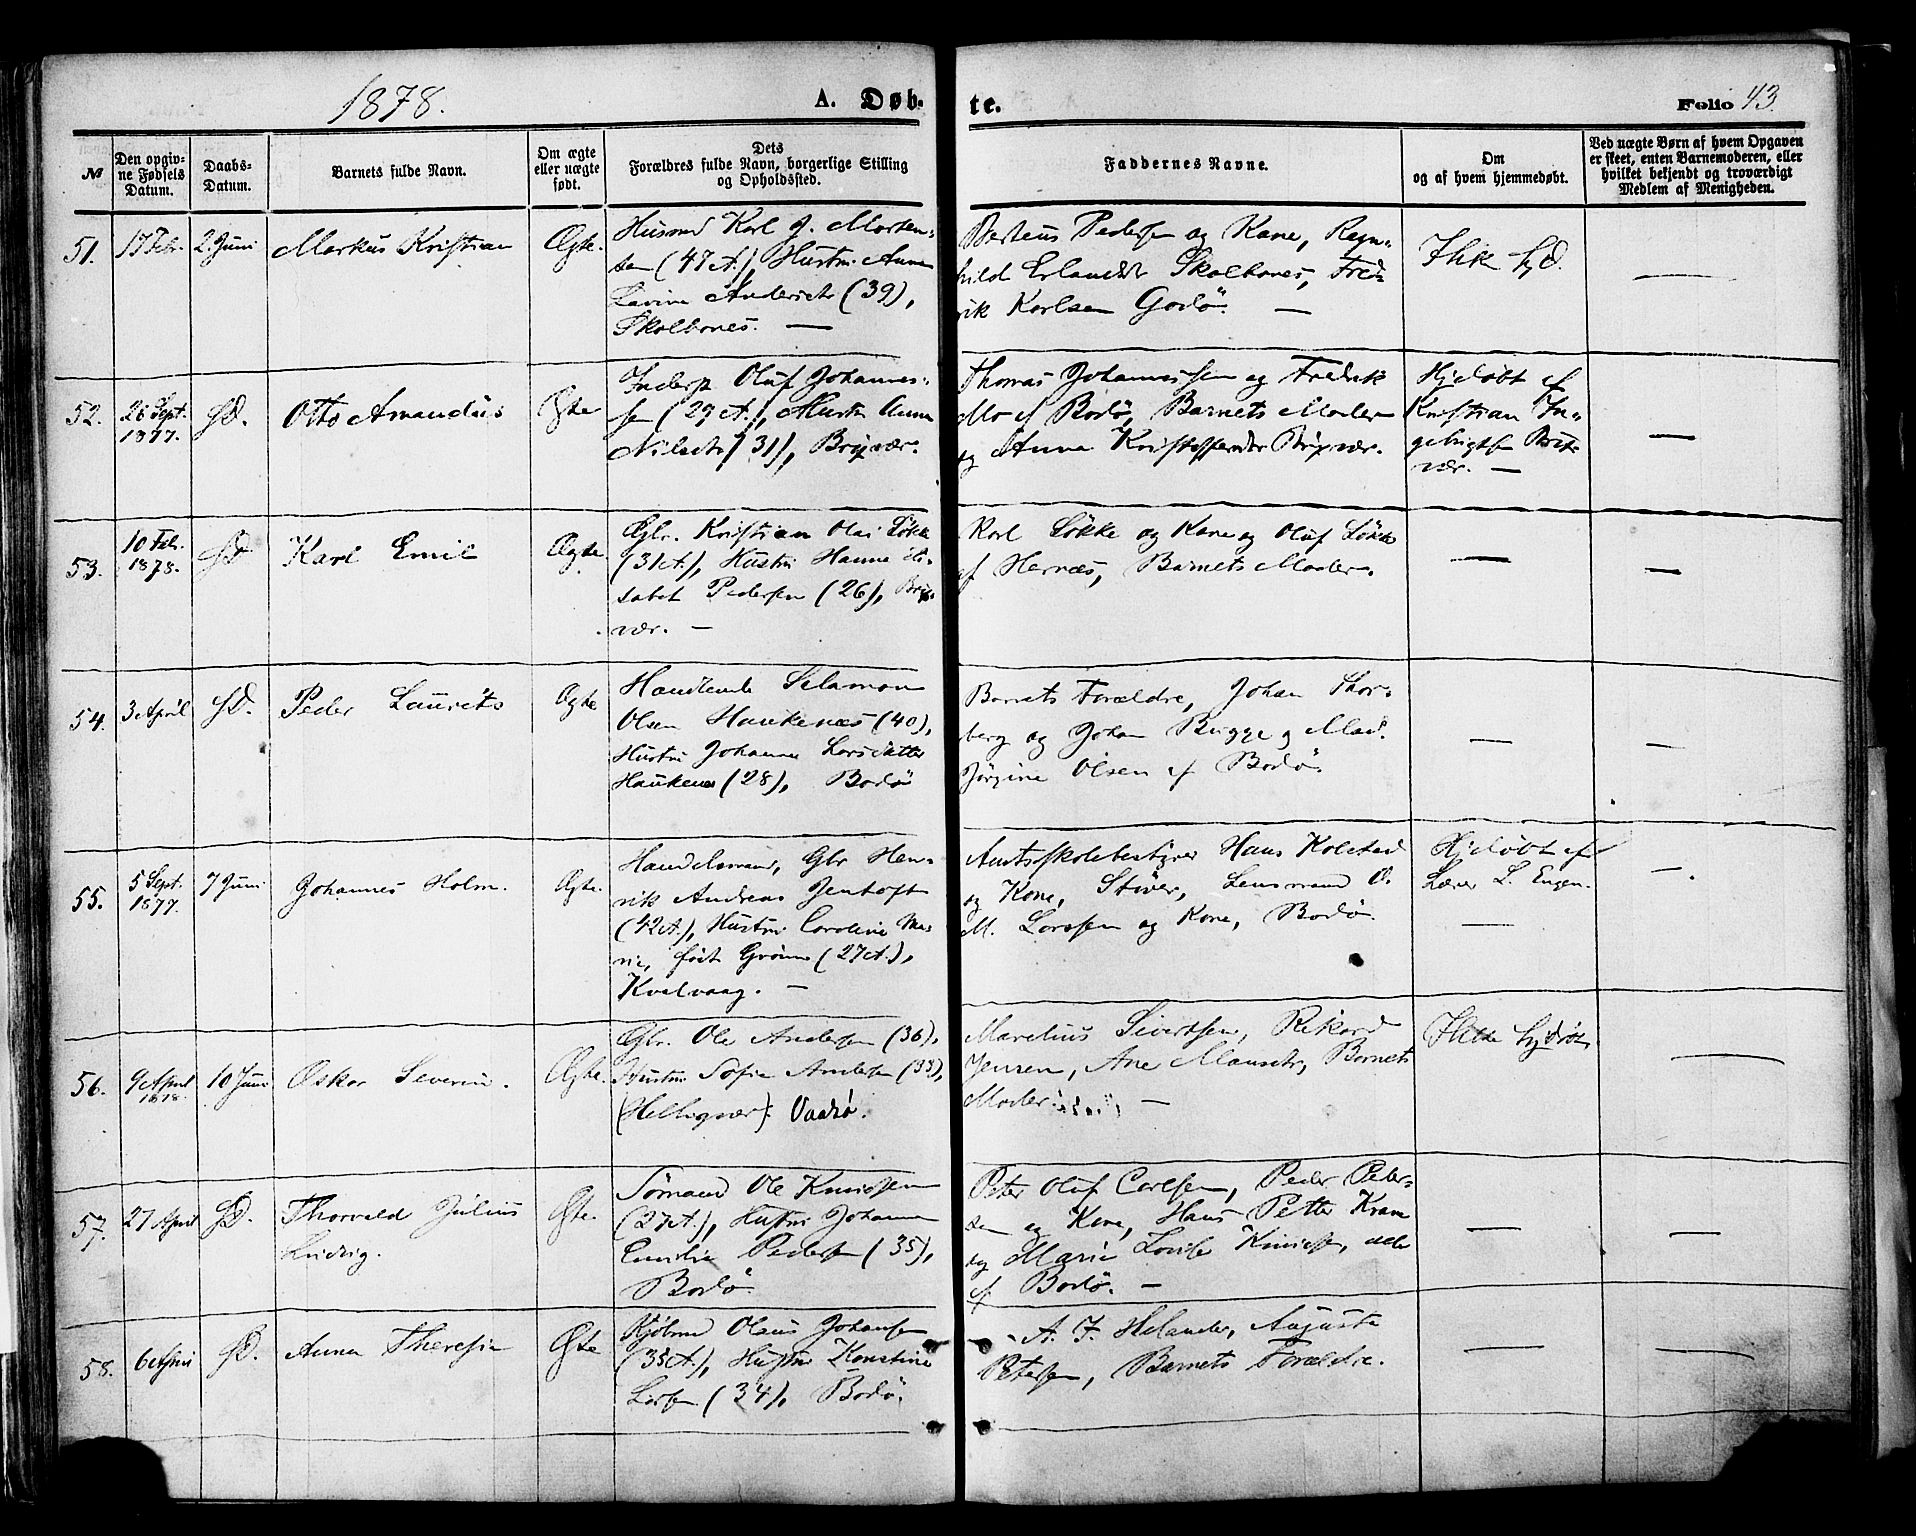 1878.
A. Døb-
te.
Folio 43.
№
Den opgiv-
ne Fødsels
Datum.
Daabs-
Datum.
Barnets fulde Navn.
Om ægte
eller uægte
født.
Dets
Forældres fulde Navn, borgerlige Stilling
og Opholdssted.
Faddernes Navne.
Om
og af hvem hjemmedøbt.
Ved uægte Børn af hvem Opgaven
er skeet, enten Barnemoderen, eller
hvilket bekjendt og troværdigt
Medlem af Menigheden.
51.
17 Febr.
2 Juni
Markus Kristian
Ægte.
Husmd Karl J. Morten-
sen (47 A.), Hustru Anne
Lavine Andersdtr (39),
Skolbones. —
Berteus Pedersen og Kone, Ragn-
hild Erlandsdtr Skolbones, Fred-
rik Karlsen Godø. —
Ikke hjd.
—
52.
26 Sept.
1877.
SD.
Otto Amandus
Ægte
Inderst Oluf Johannes-
sen (29 A.), Hustru Anna
Nilsdtr (31), Brixvær.
Thomas Johannessen og Fredrik
Mo af Bodø, Barnets Moder
og Anna Kristoffersdtr Brixvær.
Hjdøbt af
Kristian In-
gebrigtsen Brix-
vær. —
—
53.
10 Febr.
1878.
SD
Karl Emil
Ægte.
Gbr. Kristian Olai Løkke
(31 A.), Hustru Hanna Eli-
sabet Pedersen (26), Brix-
vær. —
Karl Løkke og Kone og Oluf Løkke
af Hernæs, Barnets Moder.
—
—
54.
3 April
SD.
Peder Laurits
Ægte
Handlende Selamon
Olsen Haukenæs (40),
Hustru Johanna Larsdatter
Haukenes (28), Bodø
Barnets Forældre, Johan Thor-
berg og Johan Brygge og Mad.
Jørgine Olsen af Bodø.
—
—
55.
5 Sept.
1877.
7 Juni
Johannes Holm.
Ægte.
Handelsmand, Gbr Hen-
rik Andreas Jentoft
(42 A.), Hustru Caroline Ma-
rie, født Grønn (27 A.),
Kvalvaag. —
Amtsskolebestyrer Hans Kolstad
og Kone, Støver, Lensmand O.
M. Larssen og Kone, Bodø.
Hjdøbt af
Lærer L. Engen.
—
—
56.
9 April
1878.
10 Juni
Oskar Severin.
Ægte.
Gbr. Ole Andersen (36),
Hustru Sofie Andersen (33),
(Helligvær). Vaadø.
Marelius Sivertsen, Rikard
Jensen, Ane Mansdtr, Barnets
Moder. —
Ikke hjdøbt
—
57.
27 April
SD.
Thorvald Julius
Ludvig.
Ægte.
Sømand Ole Knudsen
(27 A.), Hustru Johanna
Emilie Pedersen (35),
Bodø
Peter Oluf Carlsen, Peder Peder-
sen og Kone, Hans Petter Krane
og Marie Lovise Knudsen, alle
af Bodø. —
—
—
58.
6 April
SD.
Anna Theresia
Ægte
Kjøbmd Olaus Johansen
(35 A.), Hustru Konstine
Larsen (34), Bodø.
A. F. Helander, Augusta
Petersen, Barnets Forældre.
—
—